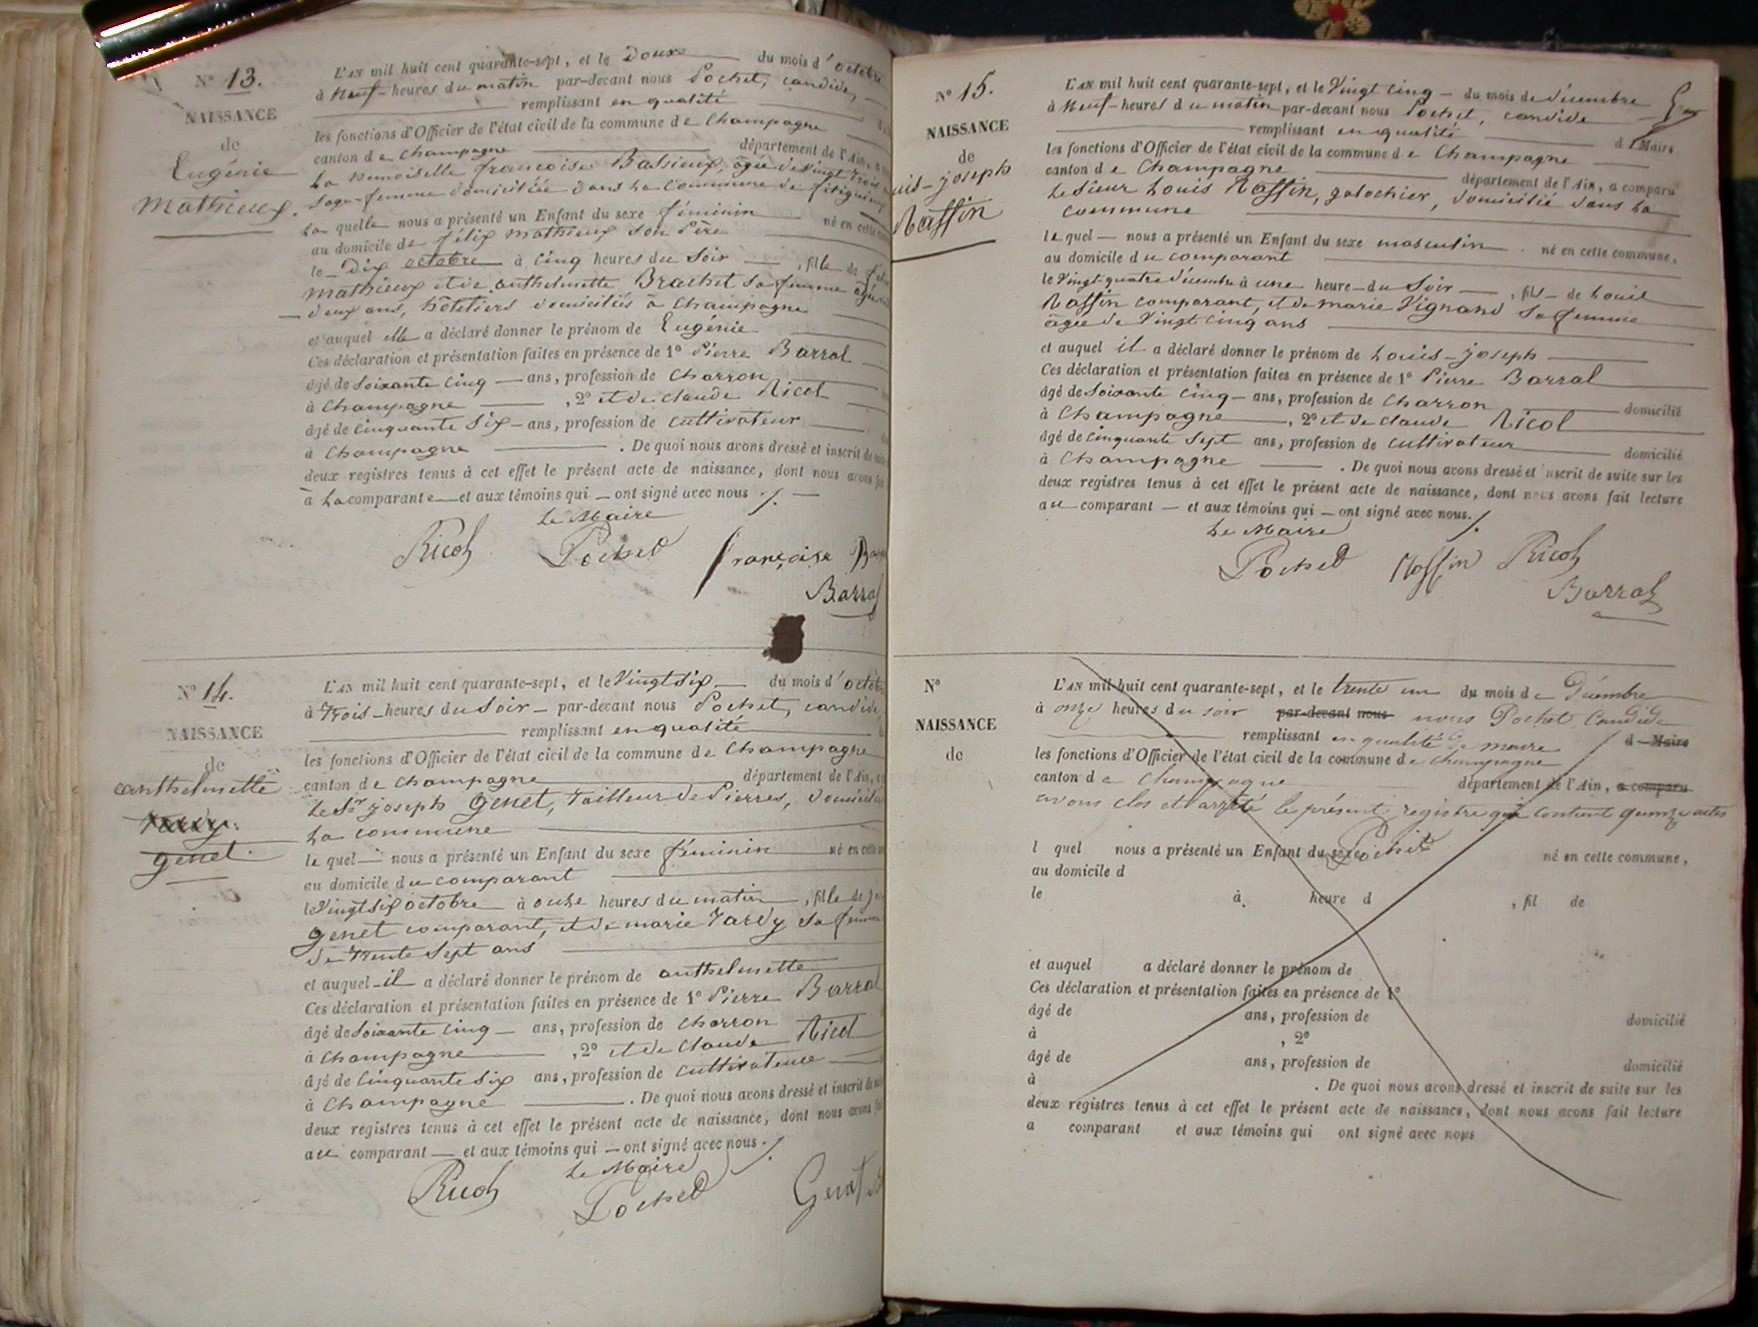 N° 13.
NAISSANCE
de
Eugénie
Mathieux.
L'AN mil huit cent quarante-sept, et le Douze du mois d'octobre
à Neuf heures du matin par-devant nous Pochet, candide,
remplissant en qualité
les fonctions d'Officier de l'état civil de la commune de Champagne
canton de Champagne département de l'Ain, a
La Demoiselle francoise Bassieux, agée de Vingt trois
Sage-femme domiciliée dans la Commune de
La quelle nous a présenté un Enfant du sexe féminin né en cette
au domicile de félix Mathieux son Père
le Dix octobre à Cinq heures du Soir, fille de
Mathieux et de anthelmette Brachet sa femme agée
deux ans, hôteliers domiciliés à Champagne
et auquel elle a déclaré donner le prénom de Eugénie
Ces déclaration et présentation faites en présence de 1° Pierre Barral
âgé de Soixante Cinq ans, profession de Charron
à Champagne, 2° et de claude Ricol
âgé de Cinquante Six ans, profession de cultivateur
à Champagne. De quoi nous avons dressé et inscrit de suite
deux registres tenus à cet effet le présent acte de naissance, dont nous avons fait
à La comparante et aux témoins qui ont signé avec nous ./.
Le Maire
Ricol Pochet françoise
Barral
N° 14.
NAISSANCE
de
anthelmette
genet.
L'AN mil huit cent quarante-sept, et le Vingt six du mois d'octobre
à trois heures du Soir par-devant nous Pochet, candide,
remplissant en qualité
les fonctions d'Officier de l'état civil de la commune de Champagne
canton de Champagne département de l'Ain,
Le Sr joseph genet, tailleur de Pierres, domicilié
La commune
le quel nous a présenté un Enfant du sexe féminin né en cette
au domicile du comparant
le Vingt six octobre à onze heures du matin, fille de
genet comparant, et de marie tardy sa femme
de trente Sept ans
et auquel il a déclaré donner le prénom de anthelmette
Ces déclaration et présentation faites en présence de 1° Pierre Barral
âgé de Soixante Cinq ans, profession de Charron
à Champagne, 2° et de claude Ricol
âgé de Cinquante Six ans, profession de cultivateur
à Champagne. De quoi nous avons dressé et inscrit de
deux registres tenus à cet effet le présent acte de naissance, dont nous avons
au comparant et aux témoins qui ont signé avec nous ./.
Le Maire
Ricol Pochet Genet
N° 15.
NAISSANCE
de
uis-joseph
Raffin
L'AN mil huit cent quarante-sept, et le Vingt cinq du mois de décembre
à Neuf heures du matin par-devant nous Pochet, candide
remplissant en qualité d Maire
les fonctions d'Officier de l'état civil de la commune de Champagne
canton de Champagne département de l'Ain, a comparu
Le Sieur Louis Raffin, galochier, domicilié dans La
commune
le quel nous a présenté un Enfant du sexe masculin né en cette commune,
au domicile du comparant
le Vingt quatre décembre à une heure du Soir, fils de Louis
Raffin comparant, et de marie Vignand sa femme
âgée de Vingt cinq ans
et auquel il a déclaré donner le prénom de Louis-joseph
Ces déclaration et présentation faites en présence de 1° Pierre Barral
âgé de Soixante Cinq ans, profession de Charron domicilié
à Champagne, 2° et de claude Ricol
âgé de Cinquante Sept ans, profession de cultivateur domicilié
à Champagne. De quoi nous avons dressé et inscrit de suite sur les
deux registres tenus à cet effet le présent acte de naissance, dont nous avons fait lecture
au comparant et aux témoins qui ont signé avec nous ./.
Le Maire
Pochet Raffin Ricol
Barral
N°
NAISSANCE
de
L'AN mil huit cent quarante-sept, et le trente un du mois de Décembre
à onze heures du soir par-devant nous nous Pochet Candide
remplissant en qualité de maire d Maire
les fonctions d'Officier de l'état civil de la commune de Champagne
canton de Champagne département de l'Ain, a comparu
avons clos et arrêté le présent registre qui contient quinze actes
Pochet
l quel nous a présenté un Enfant du sexe né en cette commune,
au domicile d
le à heure d , fil de
et auquel a déclaré donner le prénom de
Ces déclaration et présentation faites en présence de 1°
âgé de ans, profession de domicilié
à , 2°
âgé de ans, profession de domicilié
à . De quoi nous avons dressé et inscrit de suite sur les
deux registres tenus à cet effet le présent acte de naissance, dont nous avons fait lecture
a comparant et aux témoins qui ont signé avec nous